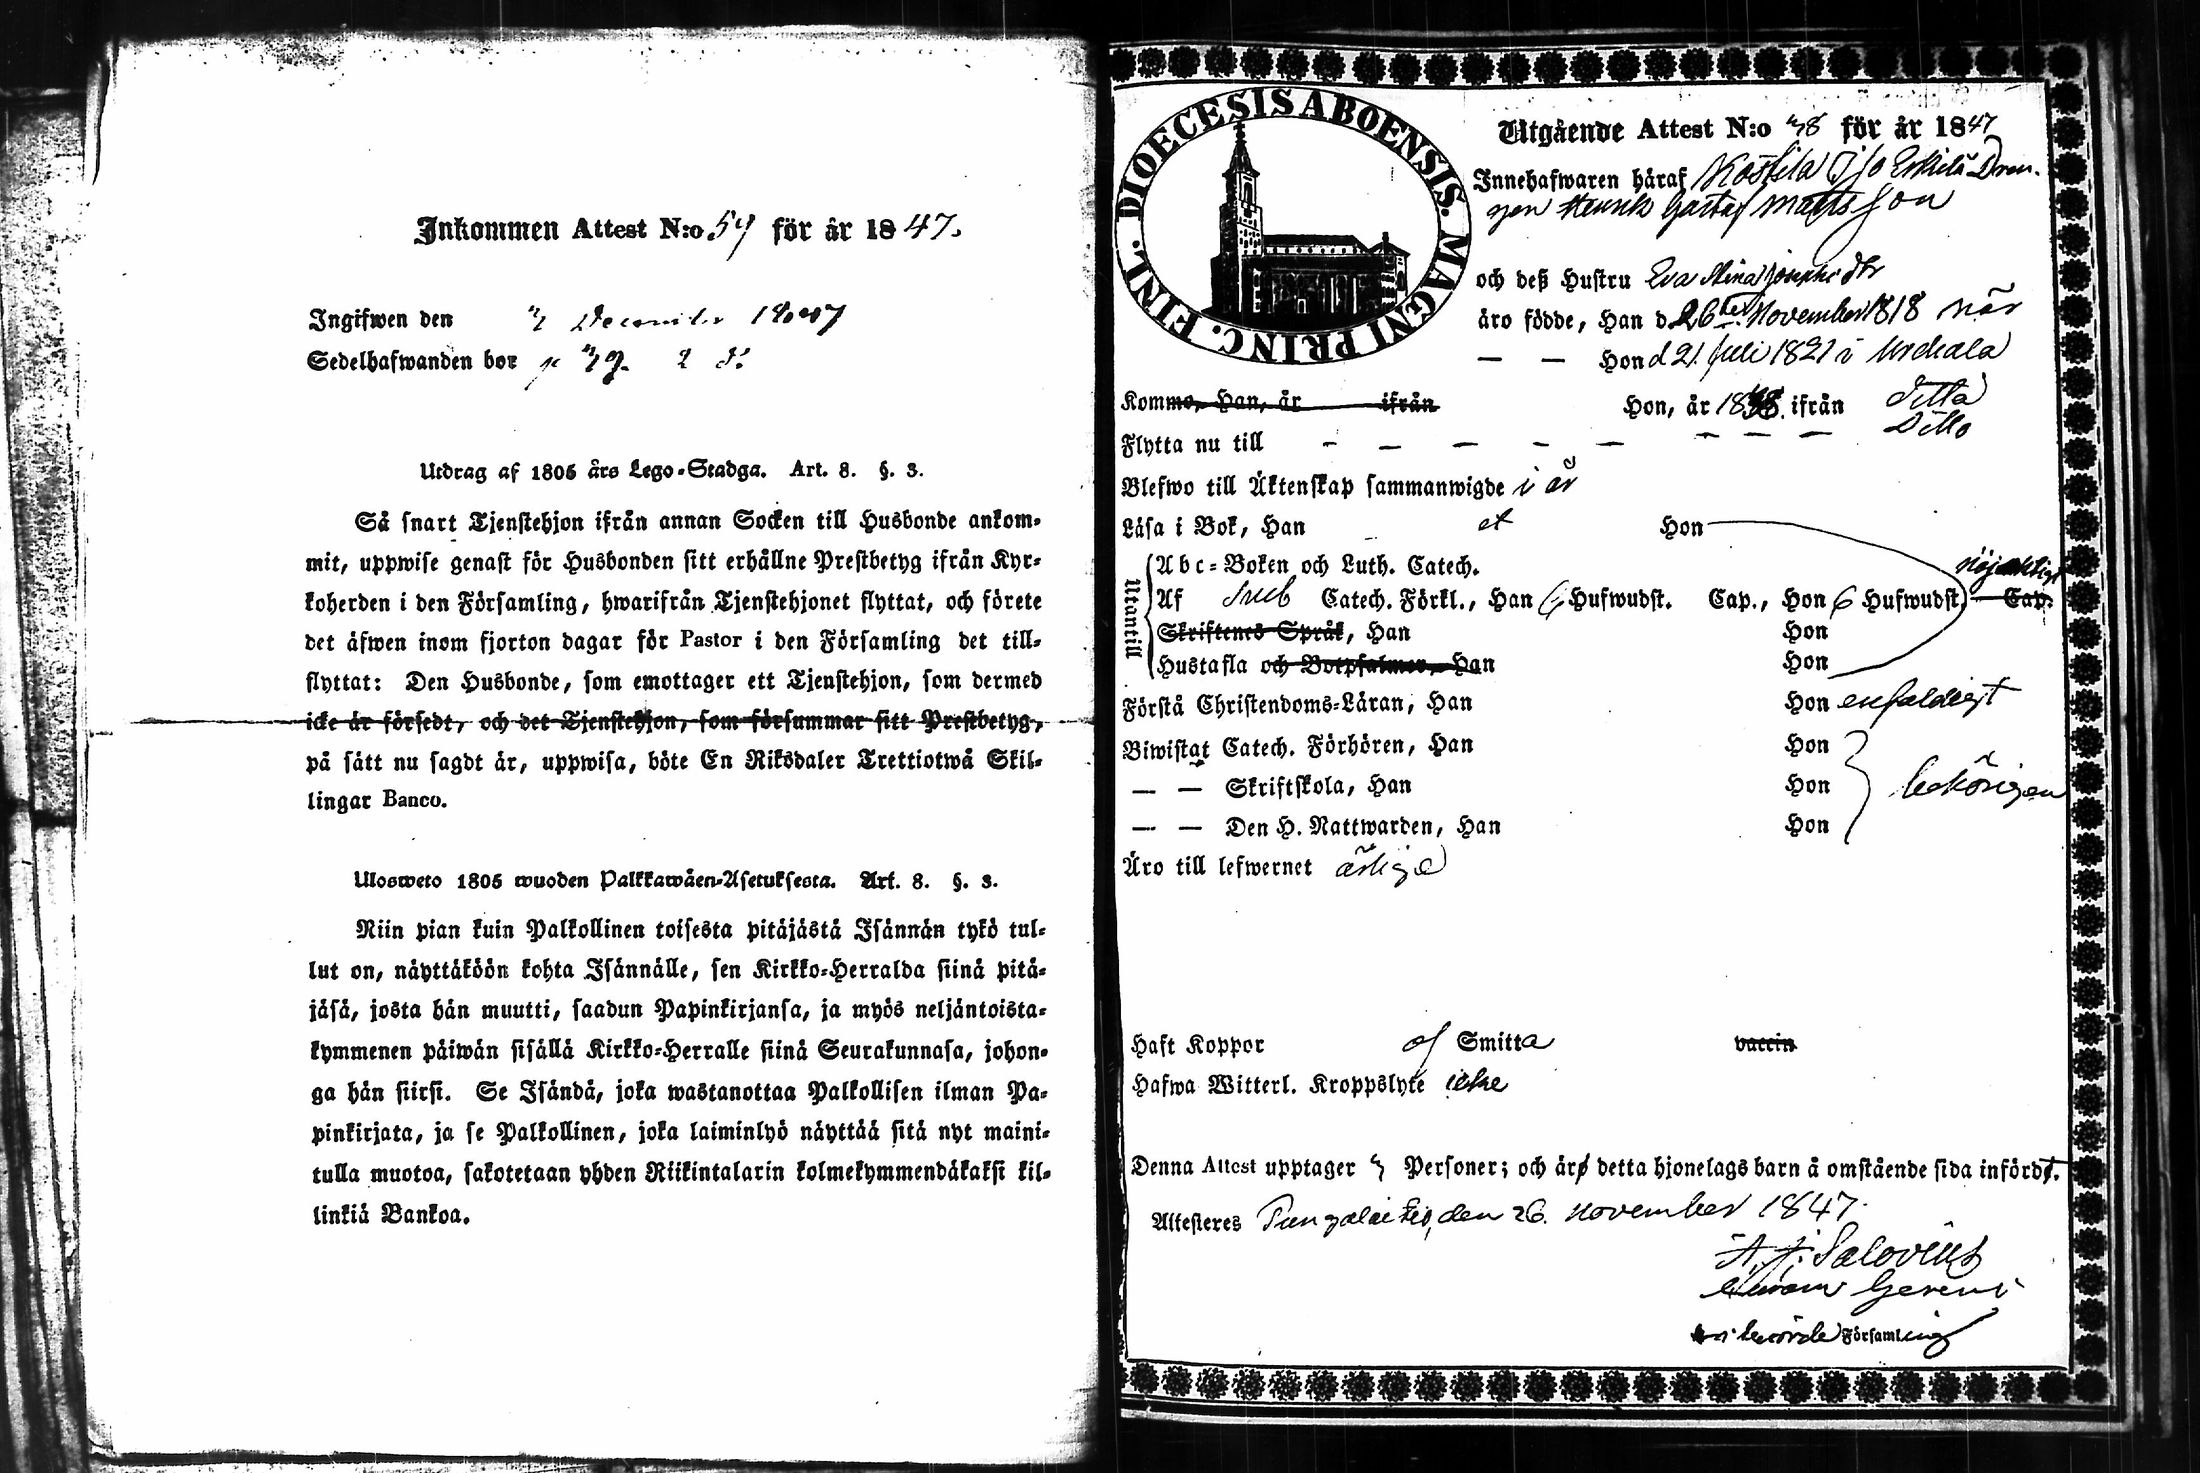 Inkommen Attest N:o 57 för år 1847.
Ingifwen den December 1847
Sedelhafwanden bor
Utdrag af 1805 års Lego-Stadga. Art. 8. §. 3.
Så snart Tjenstehjon ifrån annan Socken till Husbonde ankom-
mit, uppwise genast för Husbonden sitt erhållne Prestbetyg ifrån Kyr-
koherden i den Församling, hwarifrån Tjenstehjonet flyttat, och förete
det äfwen inom fjorton dagar för Pastor i den Församling det till-
flyttat: Den Husbonde, som emottager ett Tjenstehjon, som dermed
icke är försedt, och det Tjenstehjon, som försummar sitt Prestbetyg,
på sätt nu sagdt är, uppwisa, böte En Riksdaler Trettiotwå Skil-
lingar Banco.
Ulosweto 1805 wuoden Palkkawäen-Asetuksesta. Art. 8. §. 3.
Niin pian kuin Palkollinen toisesta pitäjästä Isännän tykö tul-
lut on, näyttäköön kohta Isännälle, sen Kirkko-Herralda siinä pitä-
jäsä, josta hän muutti, saadun Papinkirjansa, ja myös neljäntoista-
kymmenen päiwän sisällä Kirkko-Herralle siinä Seurakunnasa, johon-
ga hän siirsi. Se Isändä, joka wastanottaa Palkollisen ilman Pa-
pinkirjata, ja se Palkollinen, joka laiminlyö näyttää sitä nyt maini-
tulla muotoa, sakotetaan yhden Riikintalarin kolmekymmendäkaksi kil-
linkiä Bankoa.
DIOECESIS ABOENSIS. MAGNI PRINC. FINL.
Utgående Attest N:o 48 för år 1847
Innehafwaren häraf Drän-
gen Henrik Gustaf Matts son
och deß Hustru Eva Stina
äro födde, Han d 26te November 1818 när
— — Hon d 21 Juli 1821 i Urdiala
Kommo, Han, år ifrån Hon, år 18 ifrån Ditto
Flytta nu till — — — — — — — — Ditto
Blefwo till Äktenskap sammanwigde i år
Läsa i Bok, Han et Hon
Utantill
Abc-Boken och Luth. Catech.
nöjaktigt
Af Sveb Catech. Förkl., Han 6 Hufwudst. Cap., Hon 6 Hufwudst. Cap.
Skriftenes Språk, Han Hon
Hustafla och Botpsalmer, Han Hon
Förstå Christendoms-Läran, Han Hon enfaldigt
Biwistat Catech. Förhören, Han Hon
— — Skriftskola, Han Hon behörigen
— — Den H. Nattwarden, Han Hon
Äro till lefwernet ärliga
Haft Koppor af Smitta vaccin
Hafwa Witterl. Kroppslyte icke
Denna Attest upptager Personer; och äro detta hjonelags barn å omstående sida införde.
Attesteres Pungalaitio, den 26. November 1847.
Församling